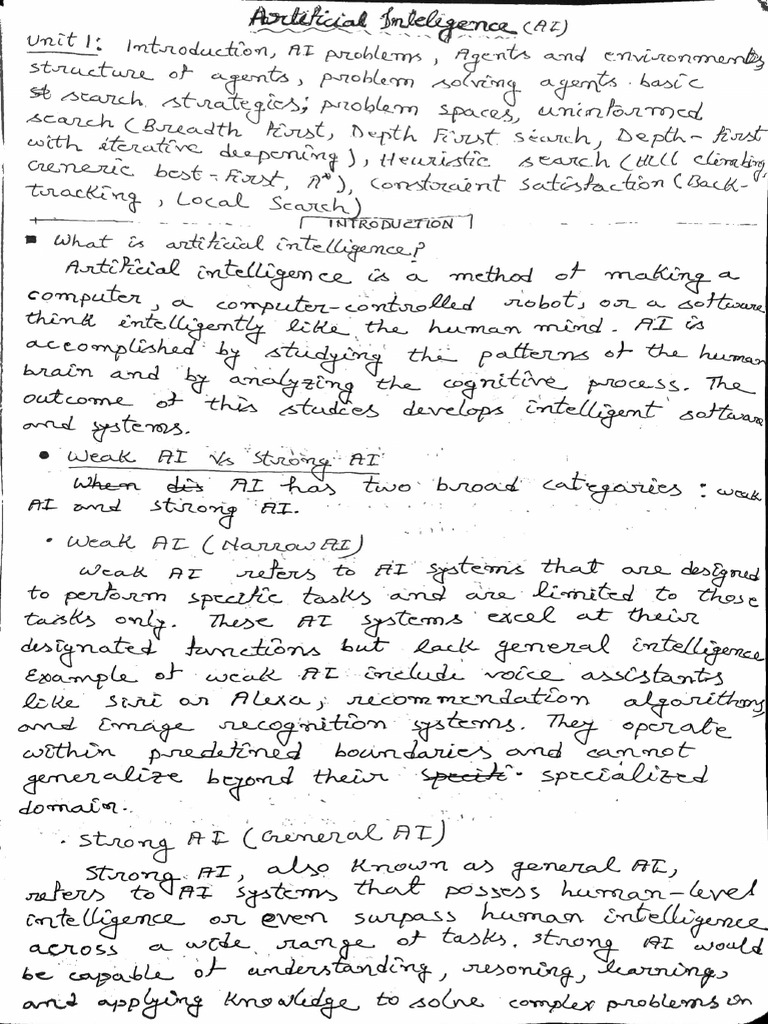 Artificial Inteligence (AI)
Unit 1: Introduction, AI problems, Agents and environments,
structure of agents, problem solving agents basic
st search strategies; problem spaces, uninformed
search (Breadth First, Depth First search, Depth-first
with iterative deepening), Heuristic search (Hill climbing,
Generic best-First, A*), constraint satisfaction (Back-
tracking, Local Search)
INTRODUCTION
▪ What is artificial intelligence?
Artificial intelligence is a method of making a
computer, a computer-controlled robot, or a software
think intelligently like the human mind. AI is
accomplished by studying the patterns of the human
brain and by analyzing the cognitive process. The
outcome of this studies develops intelligent software
and systems.
• Weak AI Vs Strong AI
When dis AI has two broad categories: weak
AI and strong AI.
• Weak AI (Narrow AI)
Weak AI refers to AI systems that are designed
to perform specific tasks and are limited to those
tasks only. These AI systems excel at their
designated functions but lack general intelligence
Example of weak AI include voice assistants
like Siri or Alexa, recommendation algorithms,
and image recognition systems. They operate
within predefined boundaries and cannot
generalize beyond their specifi- specialized
domain.
• Strong AI (General AI)
Strong AI, also known as general AI,
refers to AI systems that possess human-level
intelligence or even surpass human intelligence
across a wide range of tasks. Strong AI would
be capable of understanding, resoning, learning,
and applying knowledge to solve complex problems in